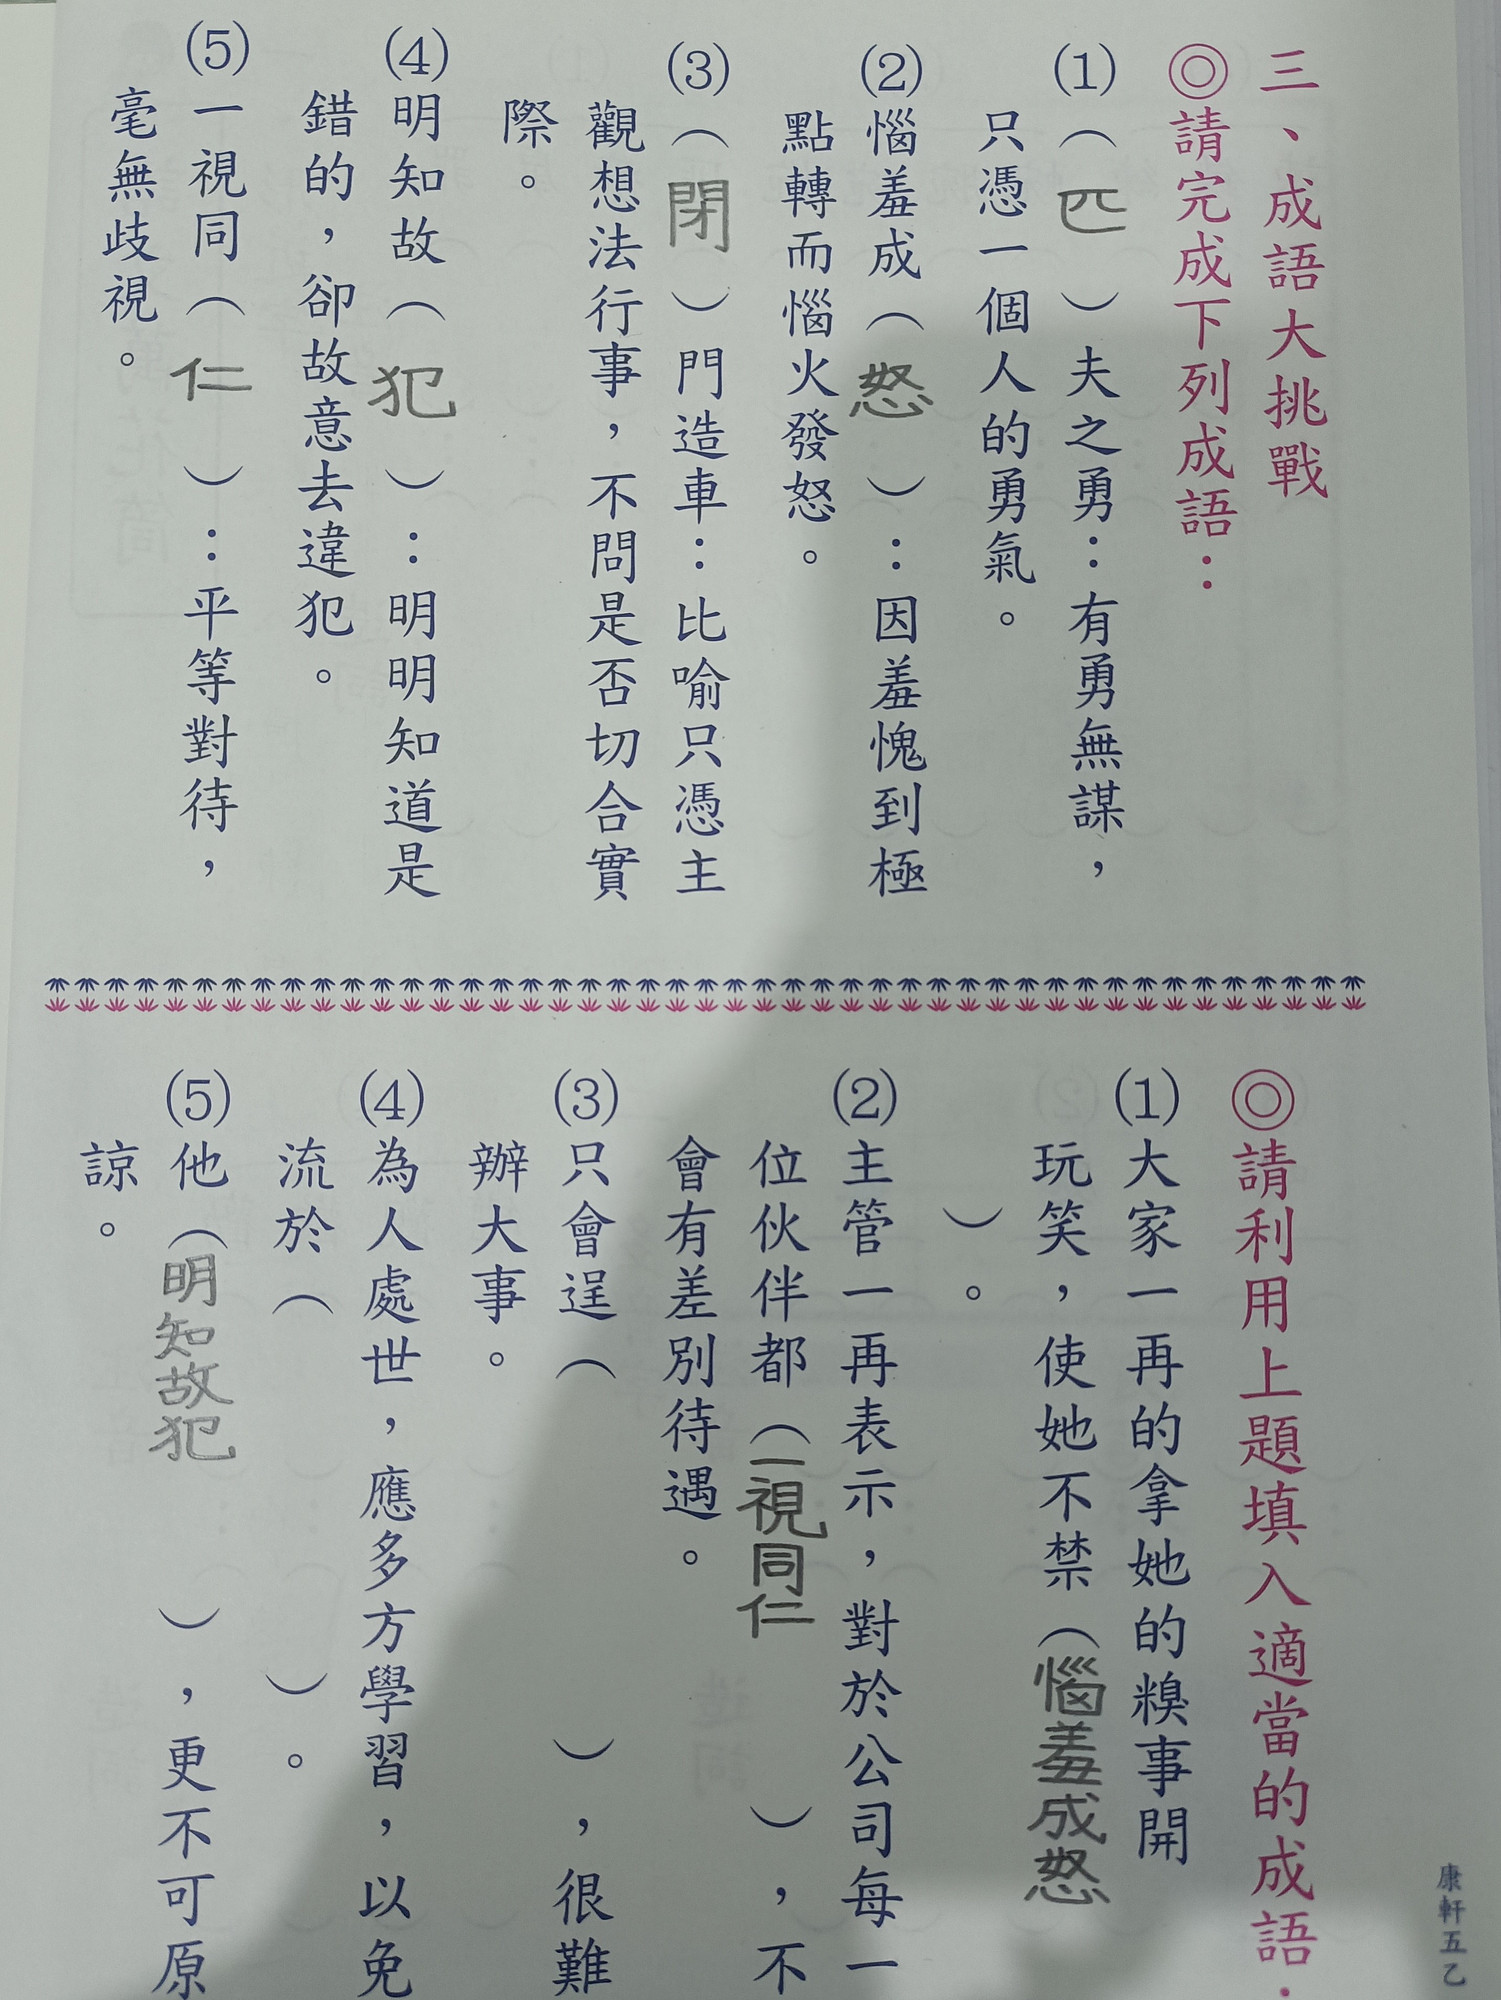 三、成語大挑戰
◎請完成下列成語：
(1)（匹）夫之勇：有勇無謀，
只憑一個人的勇氣。
(2)惱羞成（怒）：因羞愧到極
點轉而惱火發怒。
(3)（閉）門造車：比喻只憑主
觀想法行事，不問是否切合實
際。
(4)明知故（犯）：明明知道是
錯的，卻故意去違犯。
(5)一視同（仁）：平等對待，
毫無歧視。
◎請利用上題填入適當的成語：
(1)大家一再的拿她的糗事開
玩笑，使她不禁（惱羞成怒
）。
(2)主管一再表示，對於公司每一
位伙伴都（一視同仁），不
會有差別待遇。
(3)只會逞（），很難
辦大事。
(4)為人處世，應多方學習，以免
流於（）。
(5)他（明知故犯），更不可原
諒。
康軒五乙